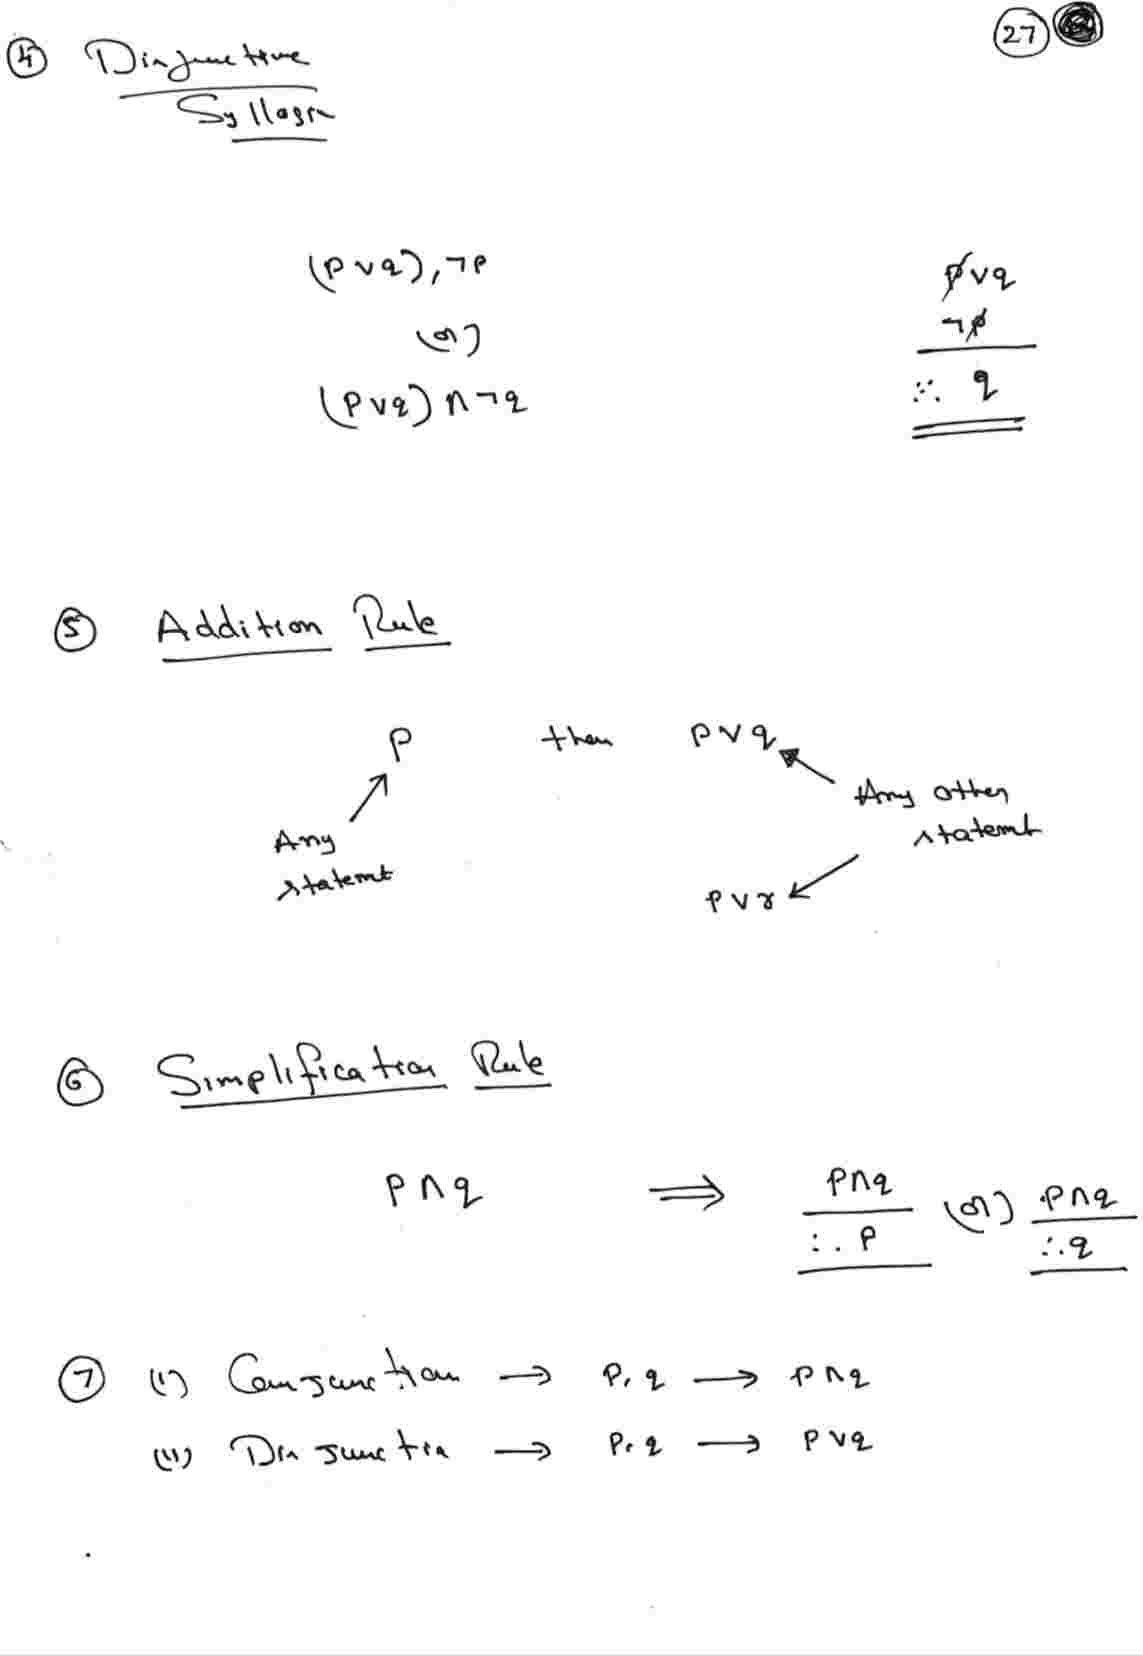 27
4 Disjunctive
Syllogism
(p ∨ q), ¬p
(or)
(p ∨ q) ∧ ¬q
p ∨ q
¬p
∴ q
5 Addition Rule
p then p ∨ q
Any other
statemt
Any
statemt
p ∨ r
6 Simplification Rule
p ∧ q ⟹ p ∧ q (or) p ∧ q
∴ p ∴ q
7 (i) Conjunction → p, q → p ∧ q
(ii) Disjunction → p, q → p ∨ q